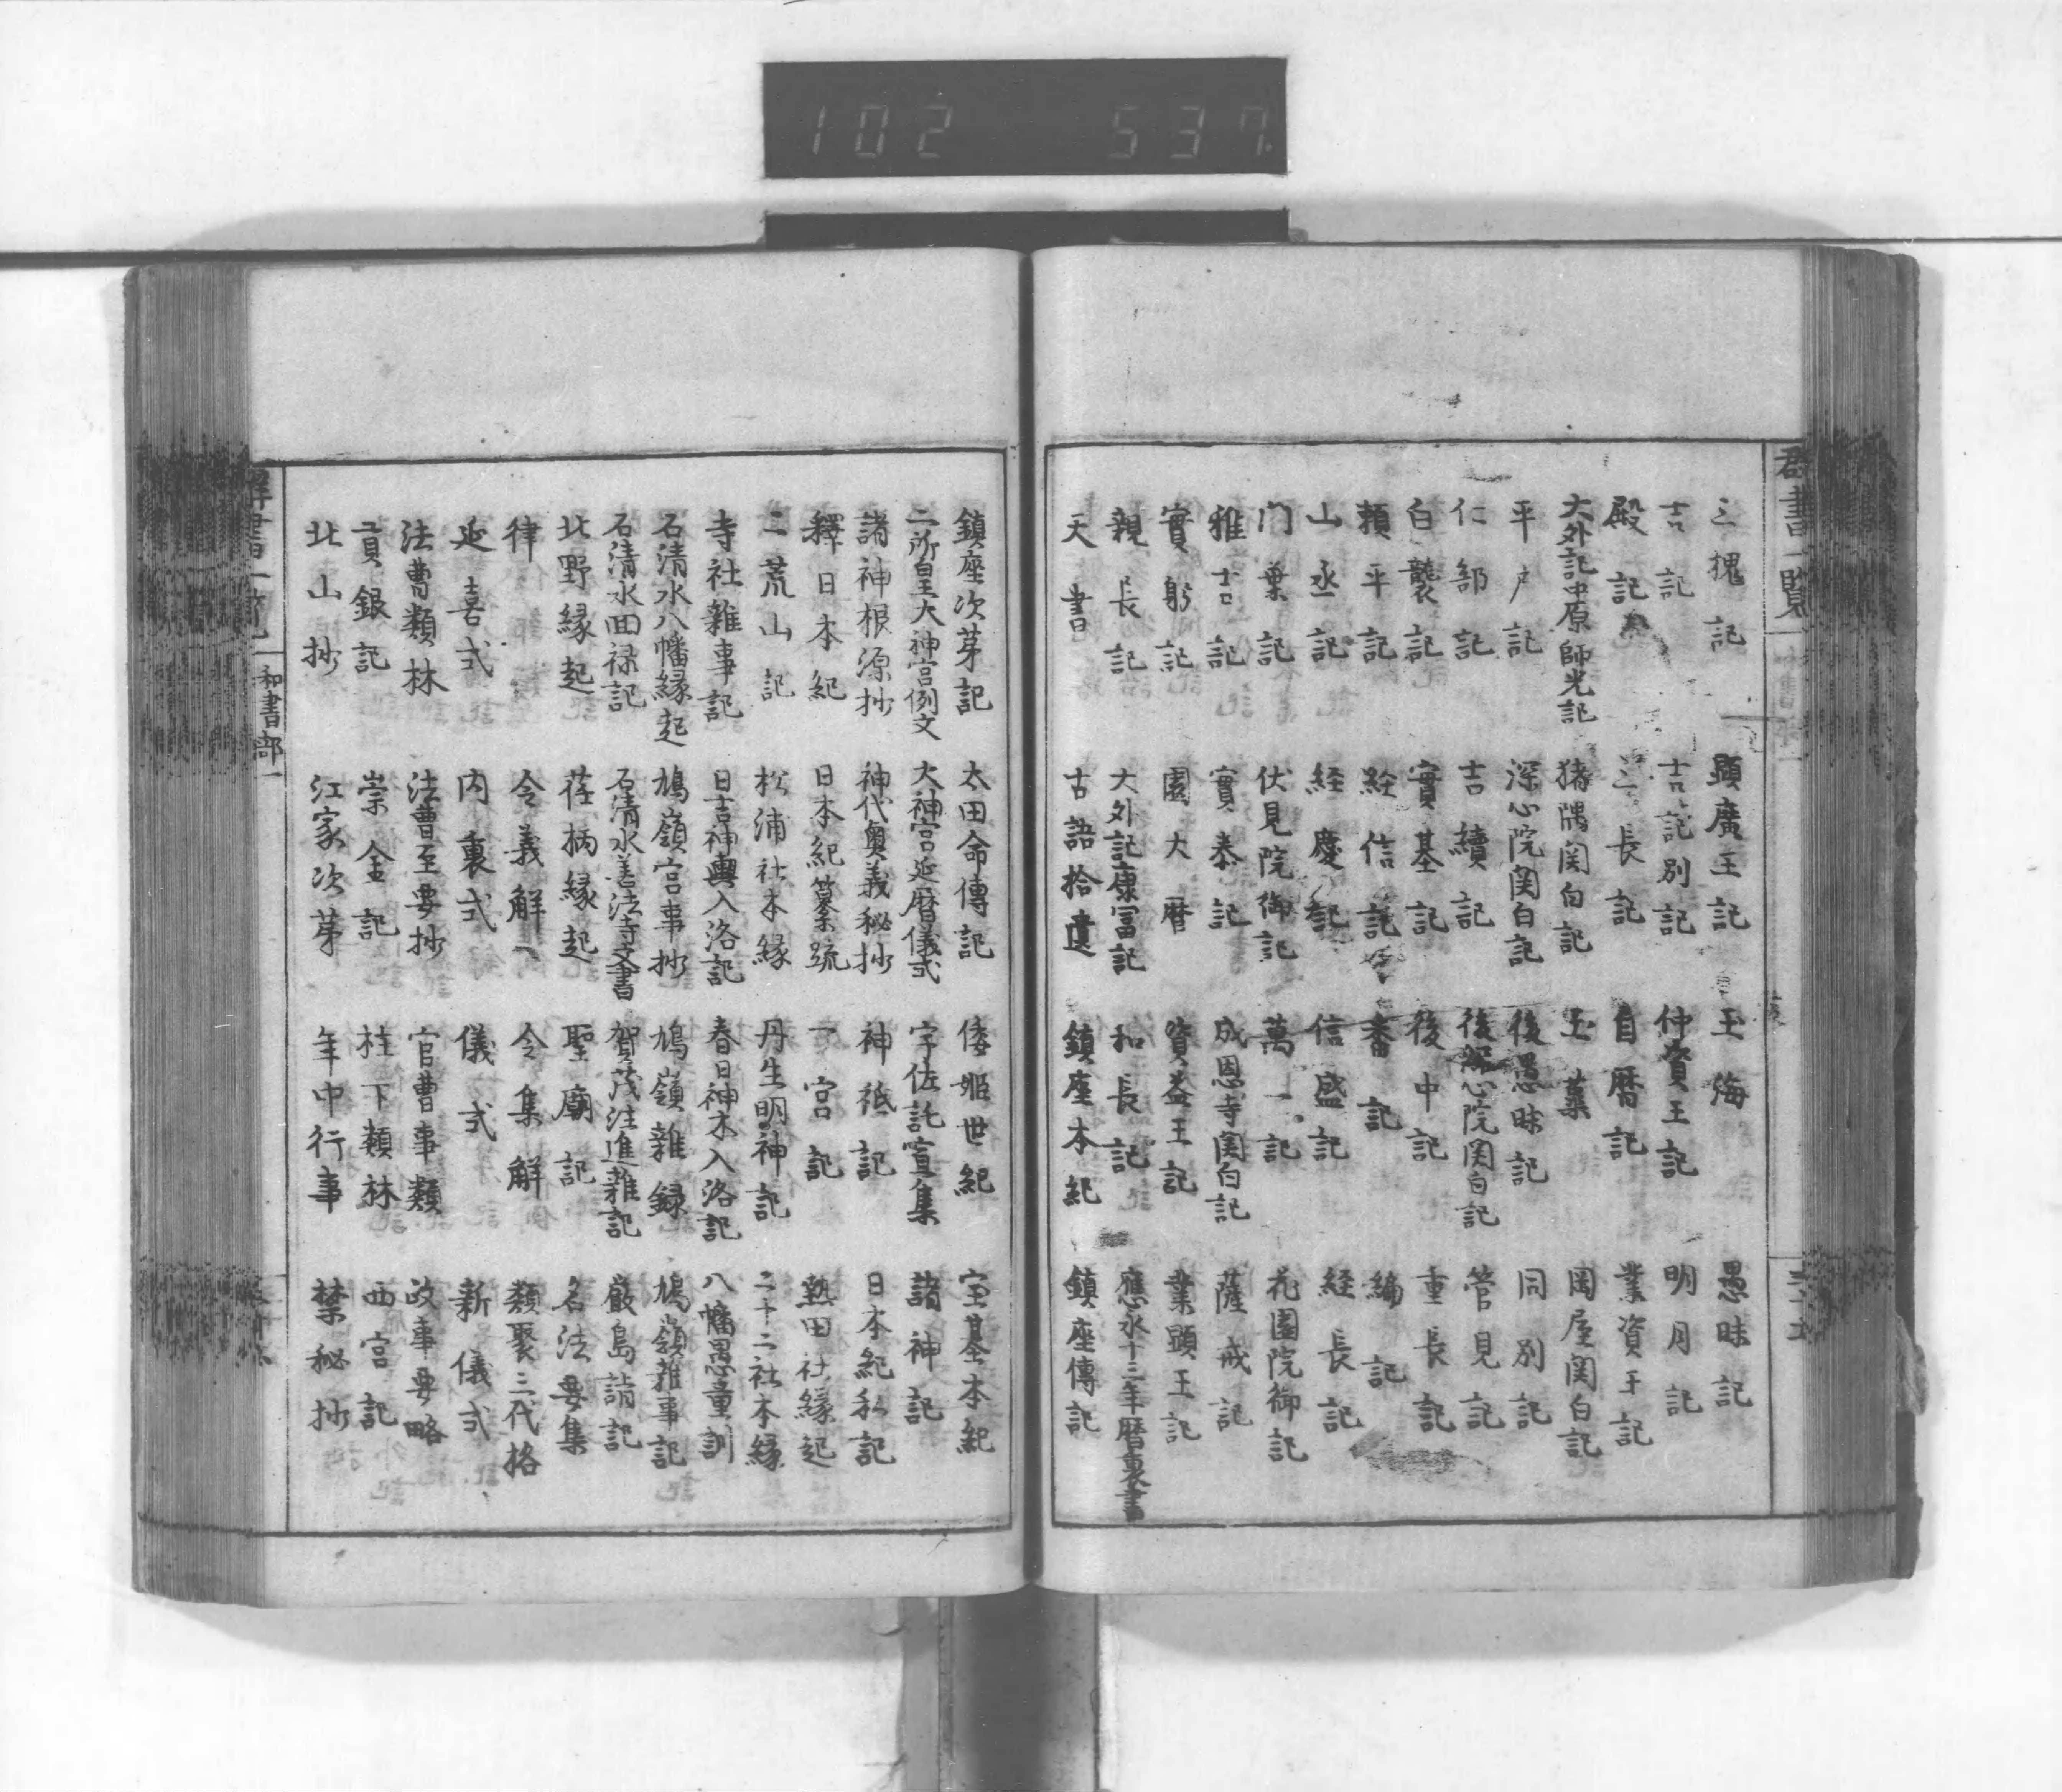 102 537
群書一覧
三槐記 顕廣王記 玉海 愚昧記
吉記 吉記別記 仲資王記 明月記
殿記 三長記 自暦記 業資王記
大外記中原師光記 猪隅関白記 玉蘂 岡屋関白記
平戸記 深心院関白記 後愚昧記 同別記
仁部記 吉續記 後深心院関白記 管見記
白襲記 實基記 後中記 重長記
頼平記 経信記 番記 編記
山丞記 経慶記 信盛記 経長記
门葉記 伏見院御記 萬一記 花園院御記
雅言記 實泰記 成恩寺関白記 薩戒記
實躬記 園大暦 資益王記 業顕王記
親長記 大外記康冨記 和長記 應永十三年暦裏書
天書 古語拾遺 鎮座本紀 鎮座傳記
鎮座次苐記 太田命傳記 倭姫世紀 宝基本紀
二所皇大神宮例文 大神宮延暦儀式 宇佐託宣集 諸神記
諸神根源抄 神代奥義秘抄 神祇記 日本紀私記
釋日本紀 日本紀纂疏 一宮記 熱田社縁起
二荒山記 松浦社本縁 丹生明神記 二十二社本縁
寺社雑事記 日吉神輿入洛記 春日神木入洛記 八幡愚童訓
石清水八幡縁起 鳩嶺宮事抄 鳩嶺雑録 鳩嶺雑事記
石清水回禄記 石清水善法寺文書 賀茂注進雑記 厳島詣記
北野縁起 荏柄縁起 聖廟記 名法要集
律 令義解 令集解 類聚三代格
延喜式 内裏式 儀式 新儀式
法曹類林 法曹至要抄 官曹事類 政事要略
貢銀記 崇金記 柱下類林 西宮記
北山抄 江家次苐 年中行事 禁秘抄
和書部一